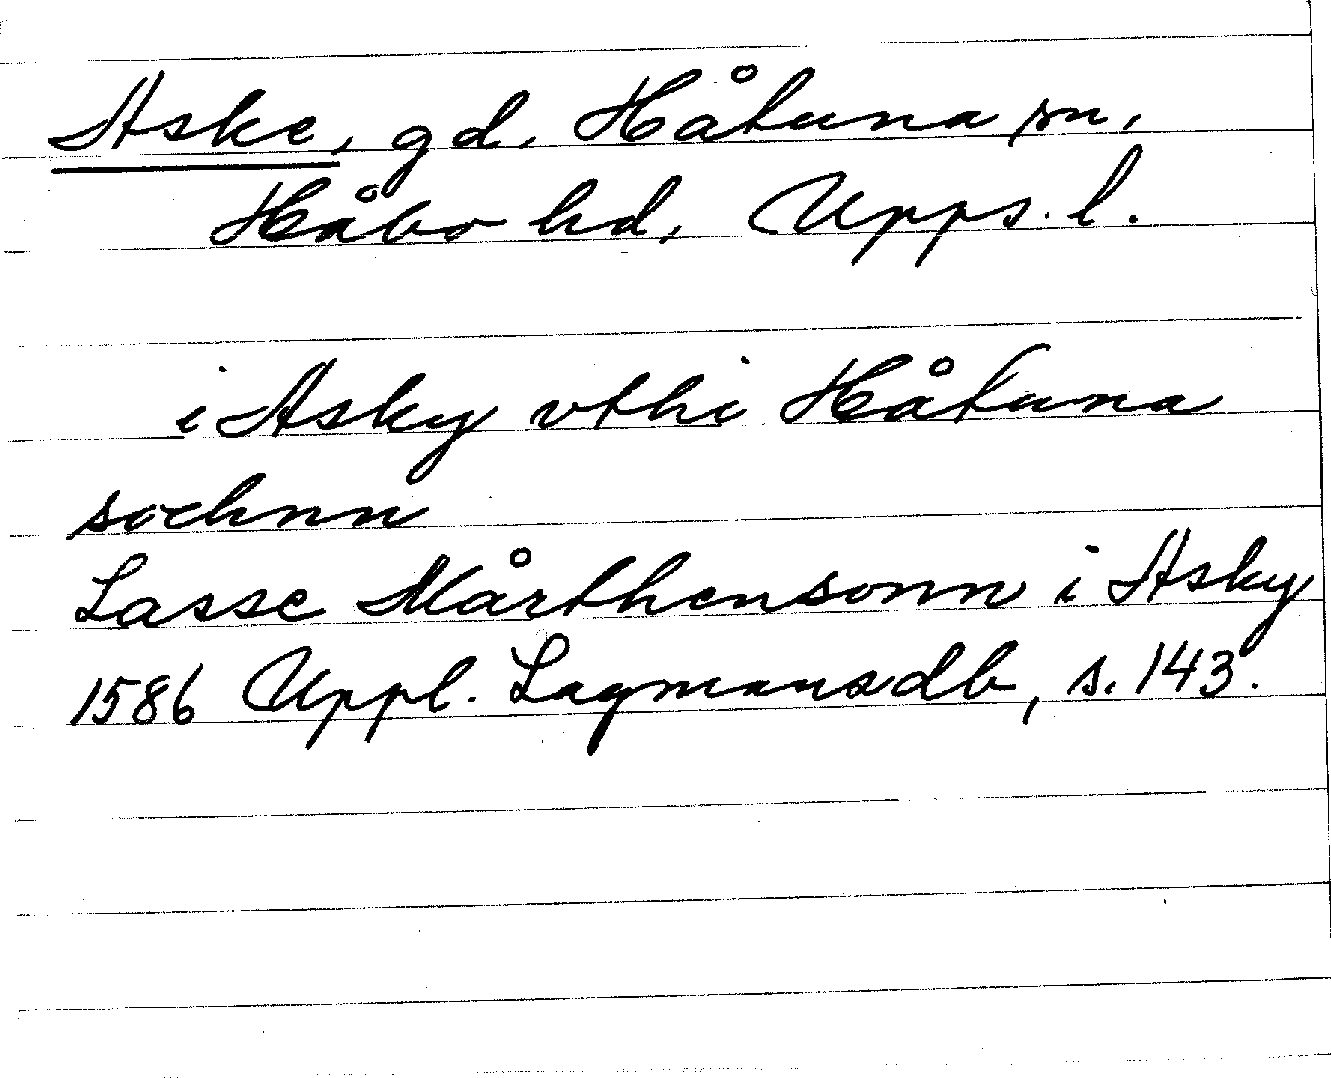 Aske, gd, Håtuna sn,
Håbo hd, Upps. l.
i Asky vthi Håtuna
sochnn
Lasse Mårthensonn i Asky
1586 Uppl. Lagmansdb, s. 143.